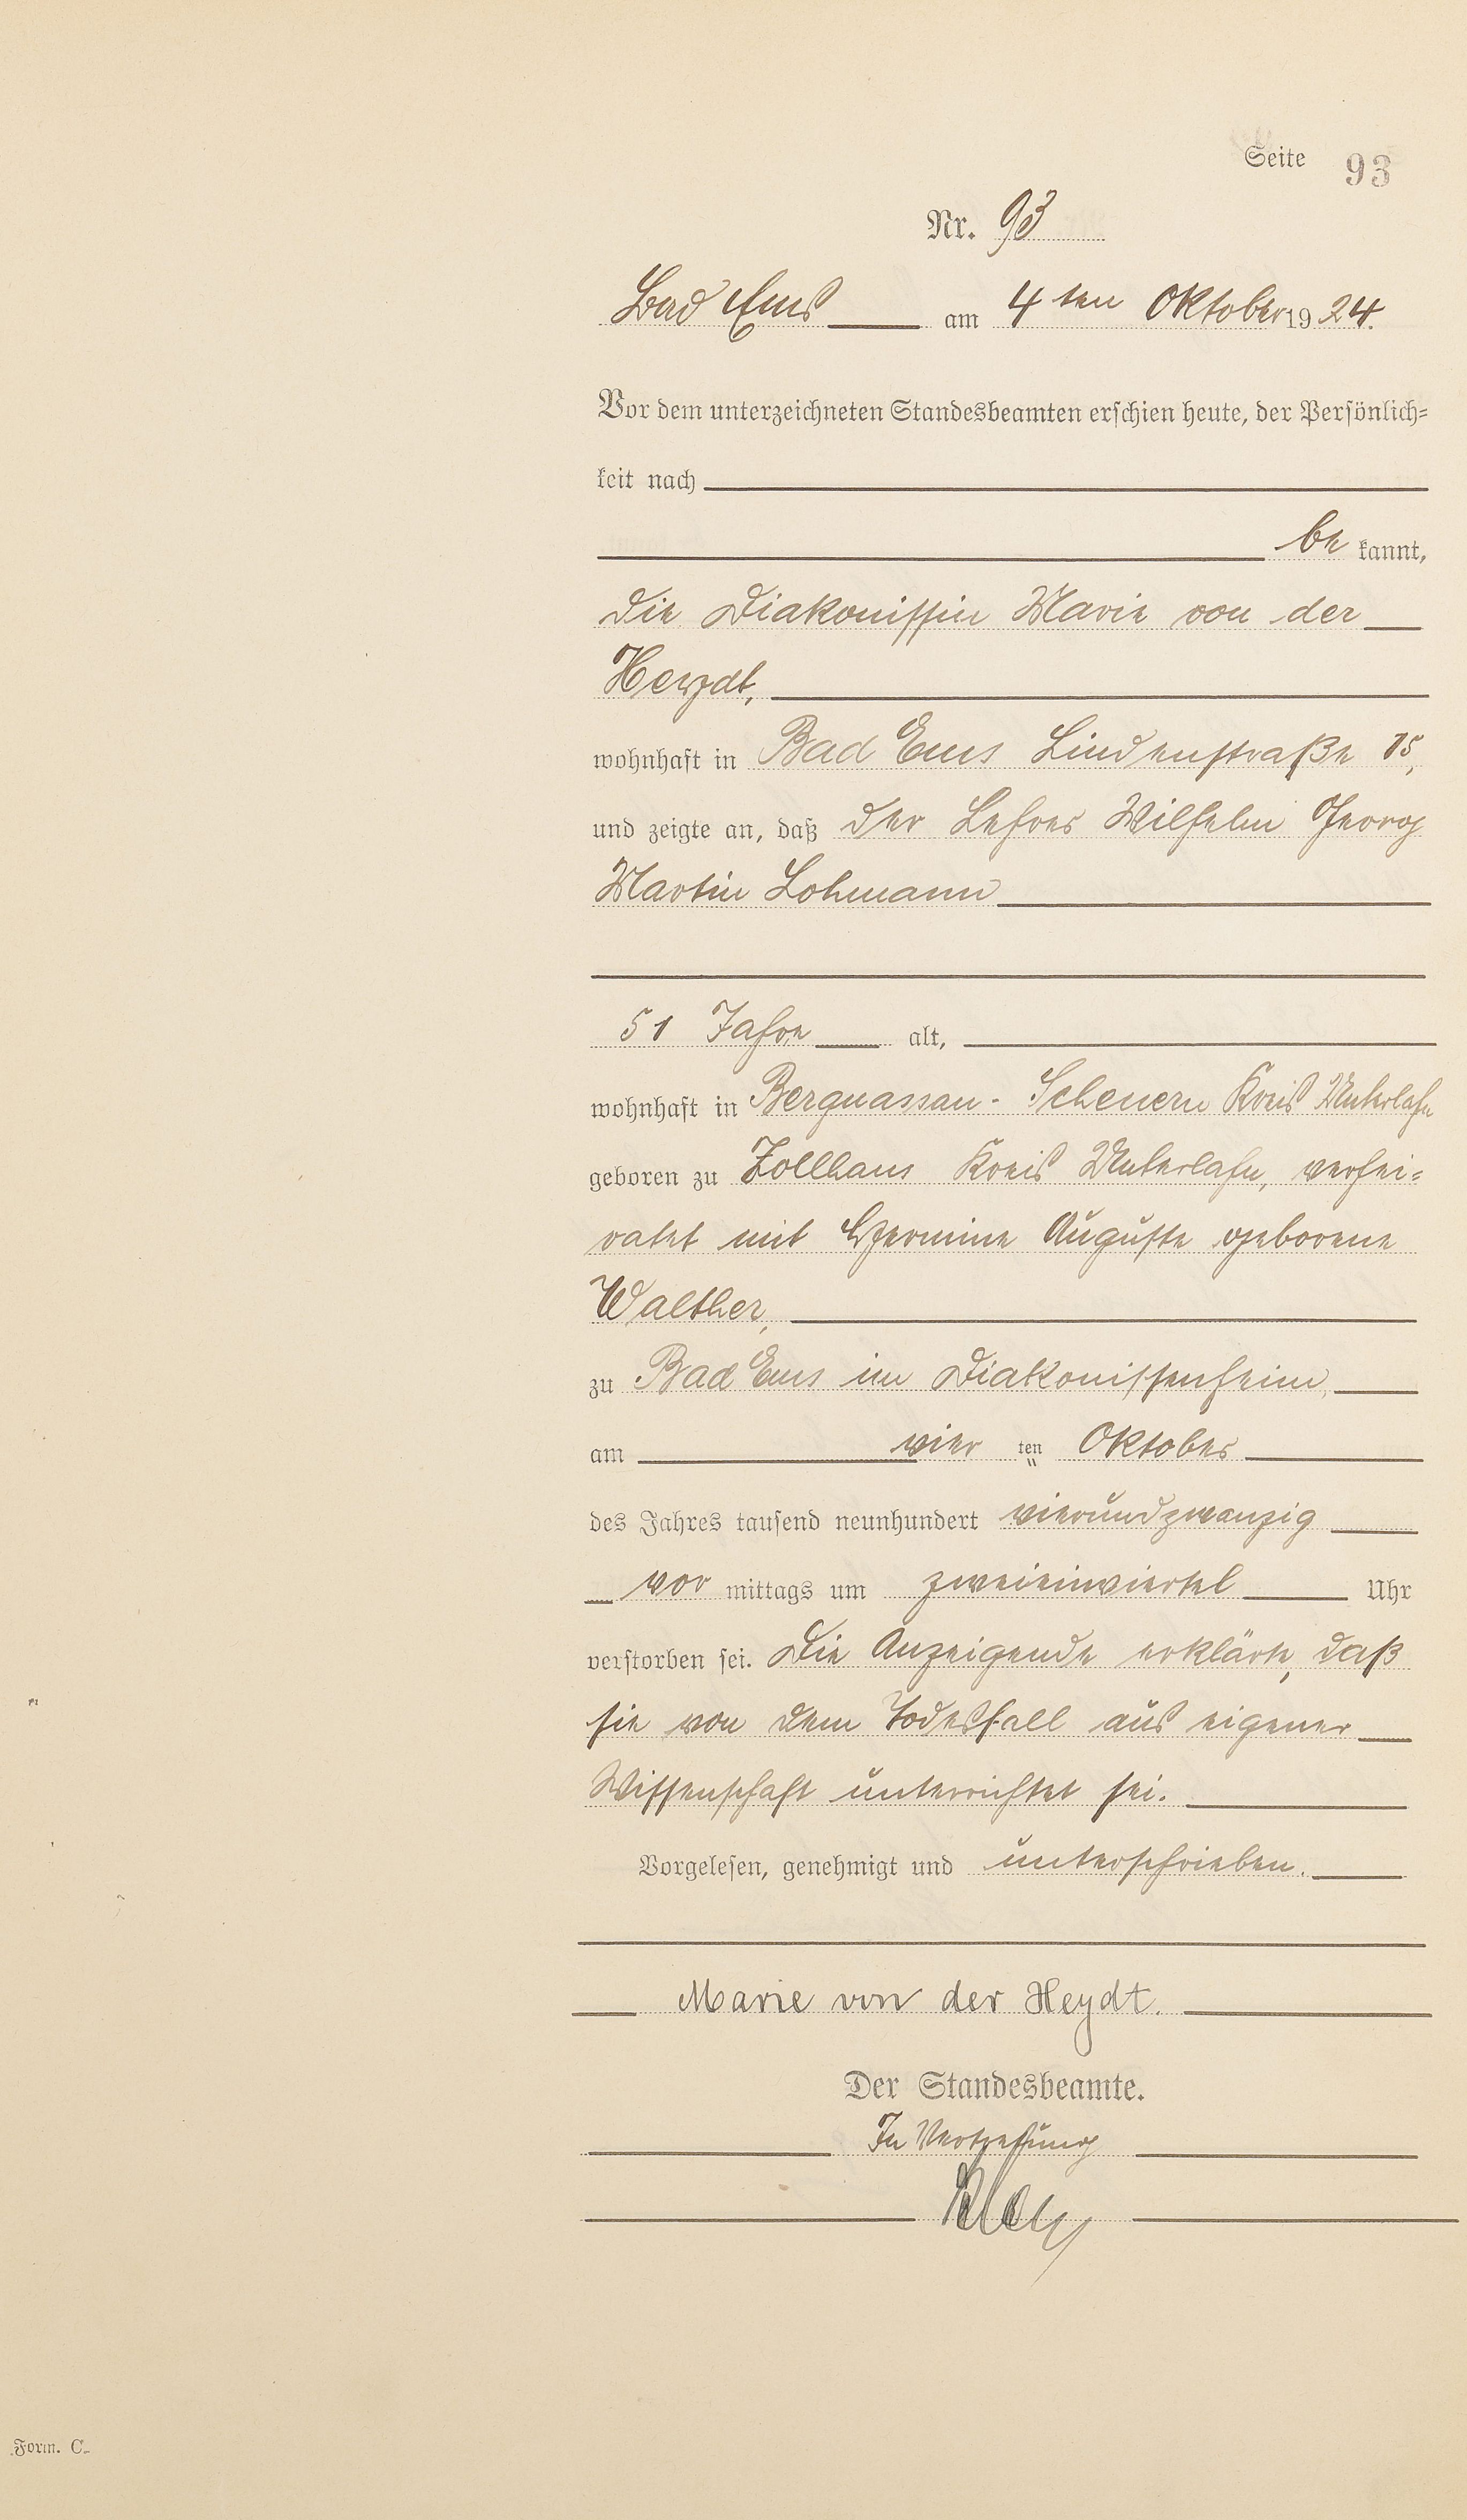 Seite 93
Nr. 93
Bad Ems am 4ten Oktober 1924.
Vor dem unterzeichneten Standesbeamten erschien heute, der Persönlich-
keit nach
be kannt,
die Diakonissin Marie von der
Heydt,
wohnhaft in Bad Ems Lindenstraße 15,
und zeigte an, daß der Lehrer Wilhelm Georg
Martin Lohmann
51 Jahre alt,
wohnhaft in Bergnassau-Scheuern Kreis Unterlahn
geboren zu Zollhaus Kreis Unterlahn, verhei-
ratet mit Hermine Auguste geborene
Walther,
zu Bad Ems im Diakonissenheim,
am vier ten Oktober
des Jahres tausend neunhundert vierundzwanzig
vor mittags um zweieinviertel Uhr
verstorben sei. Die Anzeigende erklärte, daß
sie von dem Todesfall aus eigener
Wissenschaft unterrichtet sei.
Vorgelesen, genehmigt und unterschrieben.
Marie von der Heydt.
Der Standesbeamte.
In Vertretung
Form. C.